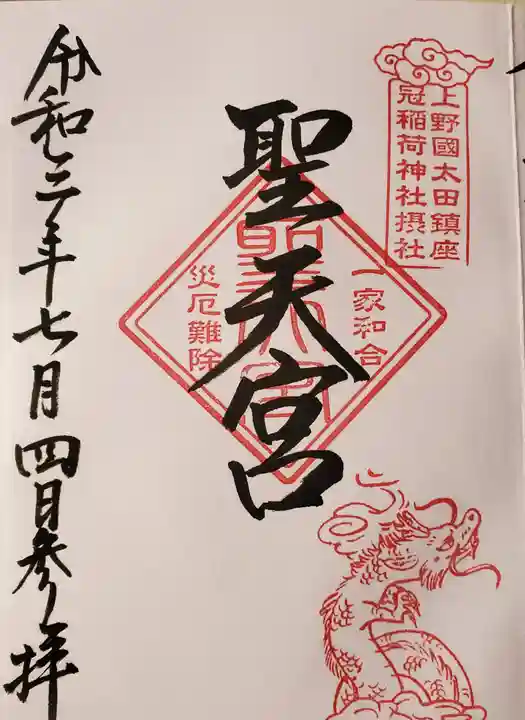 上野國太田鎮座
冠稲荷神社摂社
一家和合
聖天宮
聖天宮
災厄難除
令和三年七月四日参拝